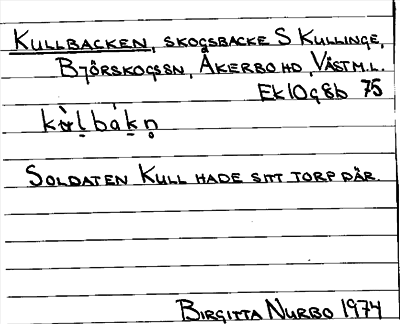 KULLBACKEN, SKOGSBACKE S KULLINGE,
BJÖRSKOGSSN, ÅKERBO HD, VÄSTM.L.
Ek 10g8b 75
SOLDATEN KULL HADE SITT TORP DÄR.
BIRGITTA NURBO 1974